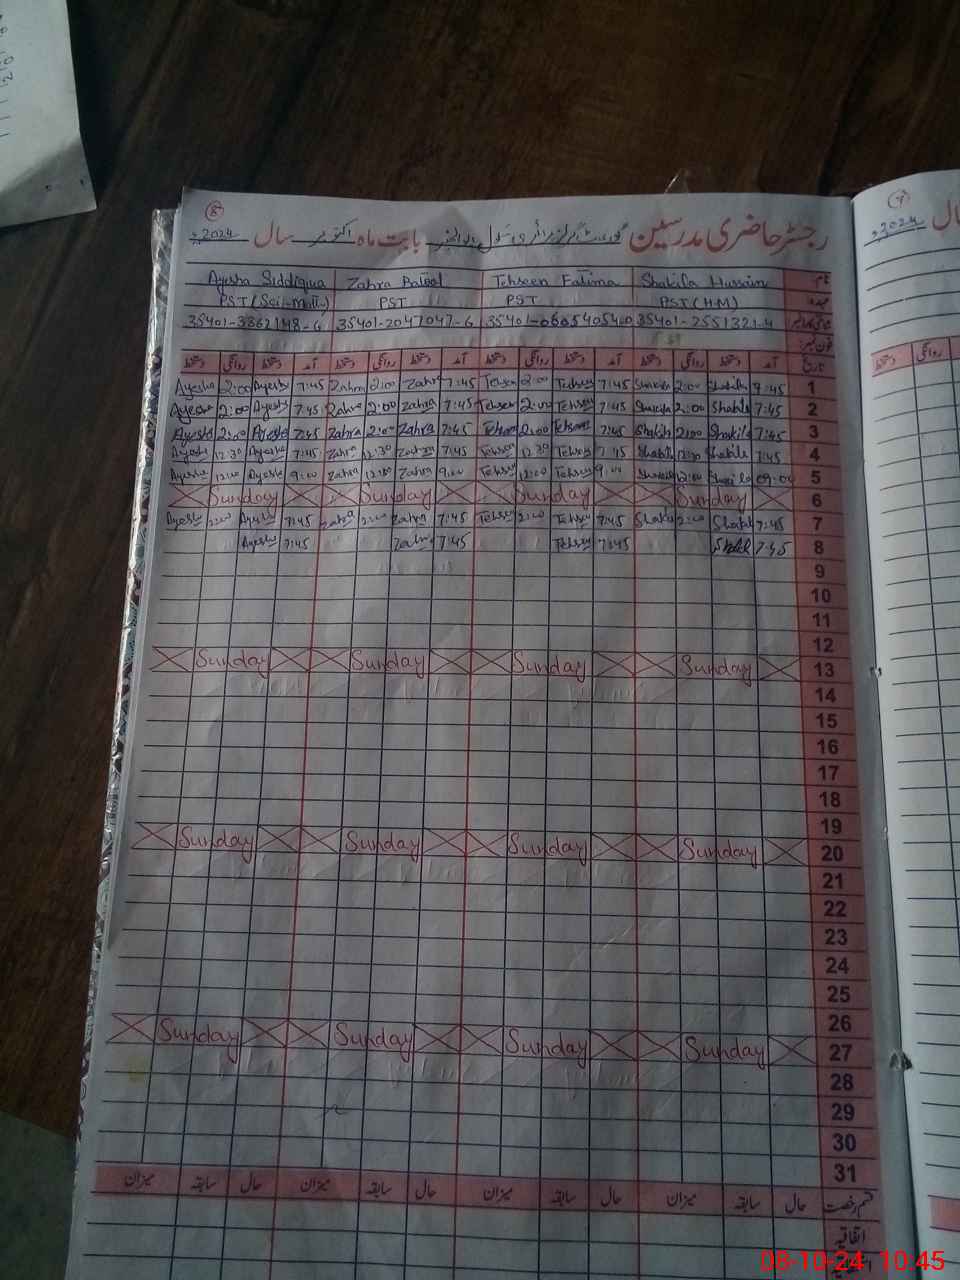 8
رجسٹر حاضری مدرسین گورنمنٹ گرلز پرائمری سکول بابت ماہ اکتوبر سال 2024ء
نام Shakila Hussain Tehseen Fatima Zahra Batool Ayesha Siddiqua
عہدہ PST (H.M) PST PST PST (Sci-Math)
شناختی کارڈ نمبر 35401-2551321-4 35401-0605405-0 35401-2047047-6 35401-3362148-6
فون نمبر
تاریخ آمد دستخط روانگی دستخط آمد دستخط روانگی دستخط آمد دستخط روانگی دستخط آمد دستخط روانگی دستخط
Ayesha 2:00 Ayesha 7:45 Zahra 2:00 Zahra 7:45 Tehseen 2:00 Tehseen 7:45 Shakila 2:00 Shakila 7:45 1
Ayesha 2:00 Ayesha 7:45 Zahra 2:00 Zahra 7:45 Tehseen 2:00 Tehseen 7:45 Shakila 2:00 Shakila 7:45 2
Ayesha 2:00 Ayesha 7:45 Zahra 2:00 Zahra 7:45 Tehseen 2:00 Tehseen 7:45 Shakila 2:00 Shakila 7:45 3
Ayesha 12:30 Ayesha 7:45 Zahra 12:30 Zahra 7:45 Tehseen 12:30 Tehseen 7:45 Shakila 12:30 Shakila 7:45 4
Ayesha 12:00 Ayesha 9:00 Zahra 12:00 Zahra 9:00 Tehseen 12:00 Tehseen 9:00 Shakila 12:00 Shakila 09:00 5
Sunday Sunday Sunday Sunday 6
Ayesha 2:00 Ayesha 7:45 Zahra 2:00 Zahra 7:45 Tehseen 2:00 Tehseen 7:45 Shakila 2:00 Shakila 7:45 7
Ayesha 7:45 Zahra 7:45 Tehseen 7:45 Shakila 7:45 8
9
10
11
12
Sunday Sunday Sunday Sunday 13
14
15
16
17
18
19
Sunday Sunday Sunday Sunday 20
21
22
23
24
25
26
Sunday Sunday Sunday Sunday 27
28
29
30
31
قسم رخصت حال سابقہ میزان حال سابقہ میزان حال سابقہ میزان حال سابقہ میزان
اتفاقیہ
7
سال 2024ء
روانگی دستخط
08-10-24 10:45